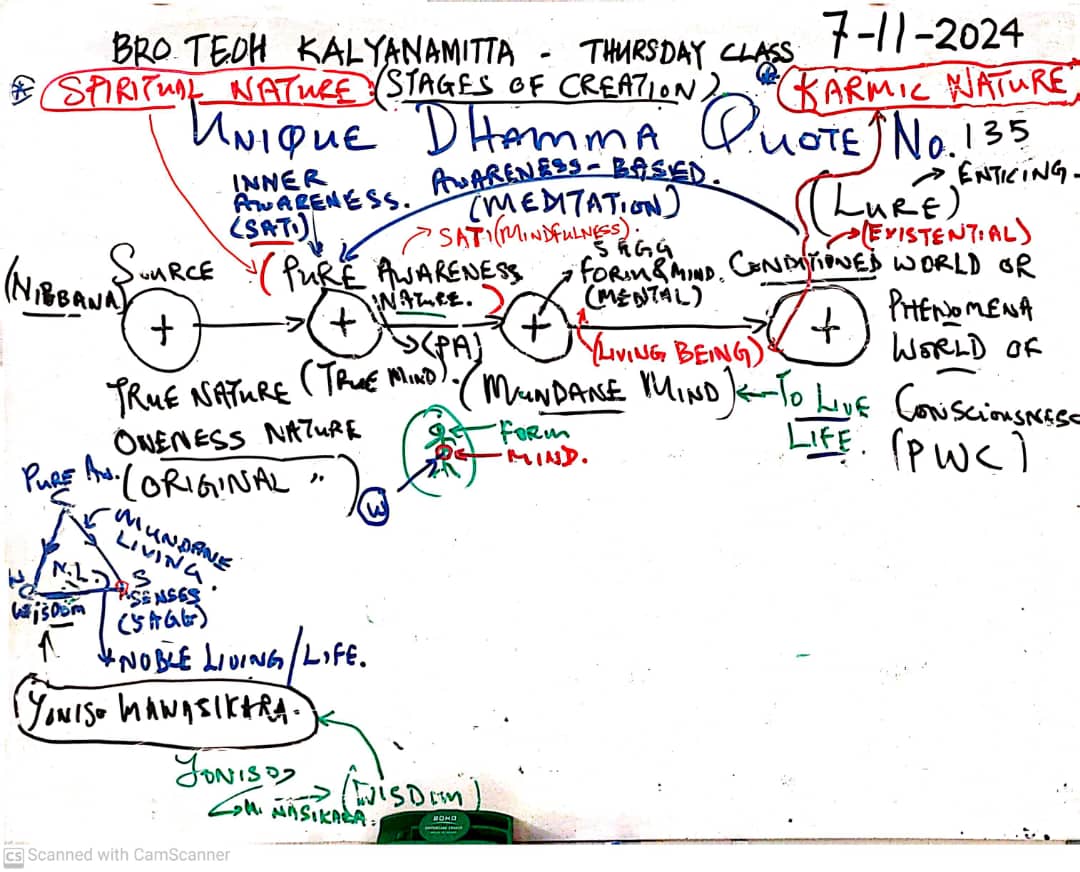 BRO TEOH KALYANAMITTA - THURSDAY CLASS 7-11-2024
SPIRITUAL NATURE (STAGES OF CREATION) KARMIC NATURE
UNIQUE DHAMMA QUOTE No. 135
INNER AWARENESS. (SATI)
AWARENESS-BASED.
(MEDITATION)
(LURE) → ENTICING
(EXISTENTIAL)
SATI (MINDFULNESS)
(NIBBANA) SOURCE
(PURE AWARENESS NATURE.)
(PA)
5AGG
FORM & MIND.
(MENTAL)
(LIVING BEING)
CONDITIONED WORLD OR
PHENOMENA
WORLD OF
CONSCIOUSNESS
(PWC)
TRUE NATURE (TRUE MIND). (MUNDANE MIND) ← TO LIVE LIFE.
ONENESS NATURE
(ORIGINAL ")
FORM
MIND.
W
PURE AW.
C
MUNDANE
LIVING.
N.L.
W
WISDOM
S
SENSES
(5AGG)
NOBLE LIVING/LIFE.
YONISO MANASIKARA.
YONISO
MANASIKARA.
(WISDOM)
SOHO
CS Scanned with CamScanner